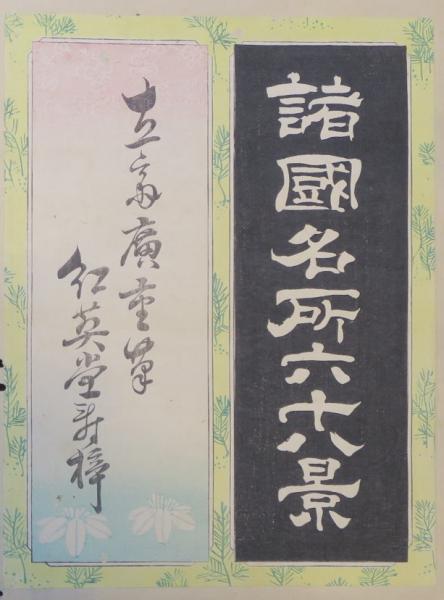 諸國名所六十八景
立斎廣重筆
紅英堂壽梓